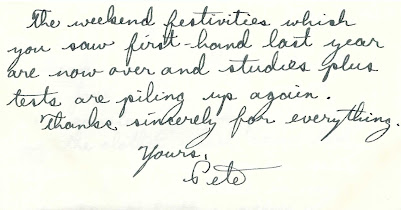 The weekend festivities which
you saw first-hand last year
are now over and studies plus
tests are piling up again.
Thanks sincerely for everything.
Yours,
Pete